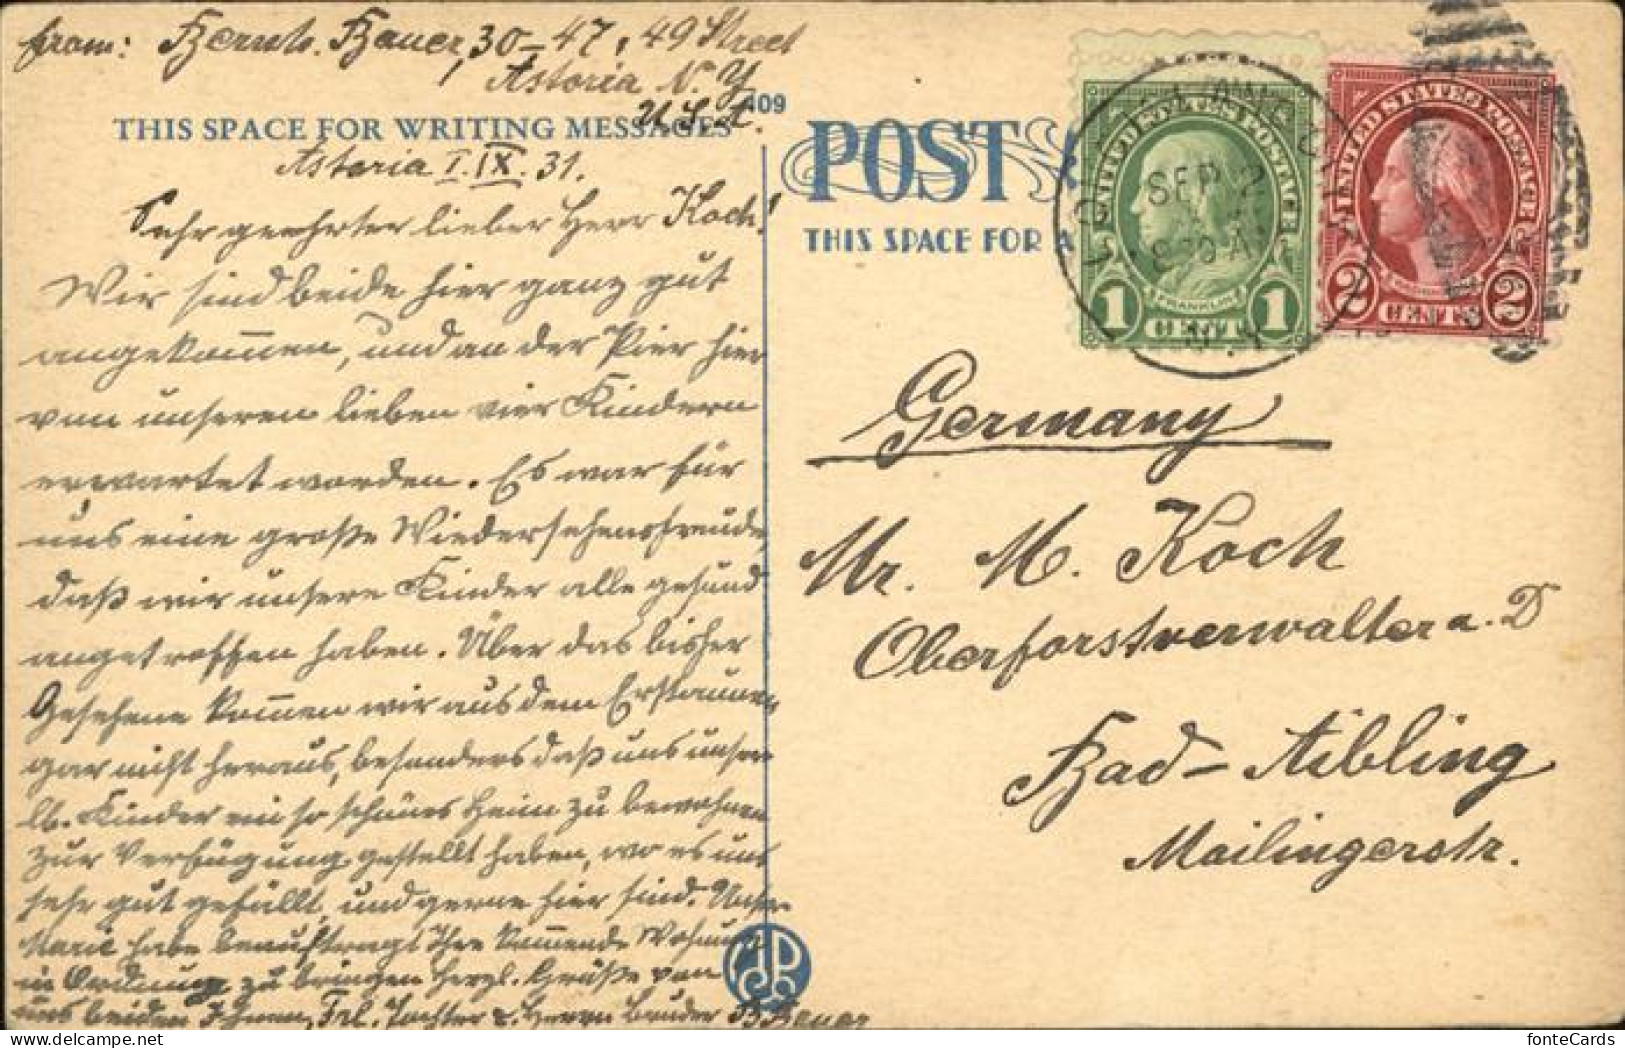 from: Bernh. Bauer, 30-47, 49 Street
Astoria N. Y.
U. S. A.
409
THIS SPACE FOR WRITING MESSAGES
Astoria I. IX. 31.
Sehr geehrter lieber Herr Koch!
Wir sind beide hier ganz gut
angekom̅en, und an der Pier hier
von unseren lieben vier Kindern
erwartet worden. Es war für
uns eine große Wiedersehensfreude,
daß wir unsere Kinder alle gesund
angetroffen haben. Über das bisher
Gesehene kom̅en wir aus dem Erstaunen
gar nicht heraus, besonders daß uns unsere
lb. Kinder ein so schönes Heim zu bewohnen
zur Verfügung gestellt haben, wo es uns
sehr gut gefällt, und gerne hier sind. Unsere
Marie habe beauftragt Ihre kom̅ende Wohnung
in Ordnung zu bringen herzl. Grüße von
uns beiden Ihnen, Frl. Tochter & Herrn Bruder B. Bauer
POST
THIS SPACE FOR A
UNITED STATES POSTAGE
FRANKLIN
1 CENT 1
SEP 2
N.Y.
UNITED STATES POSTAGE
2 CENTS 2
Germany
Mr. M. Koch
Oberforstverwalter a. D
Bad-Aibling
Mailingerstr.
fonteCards